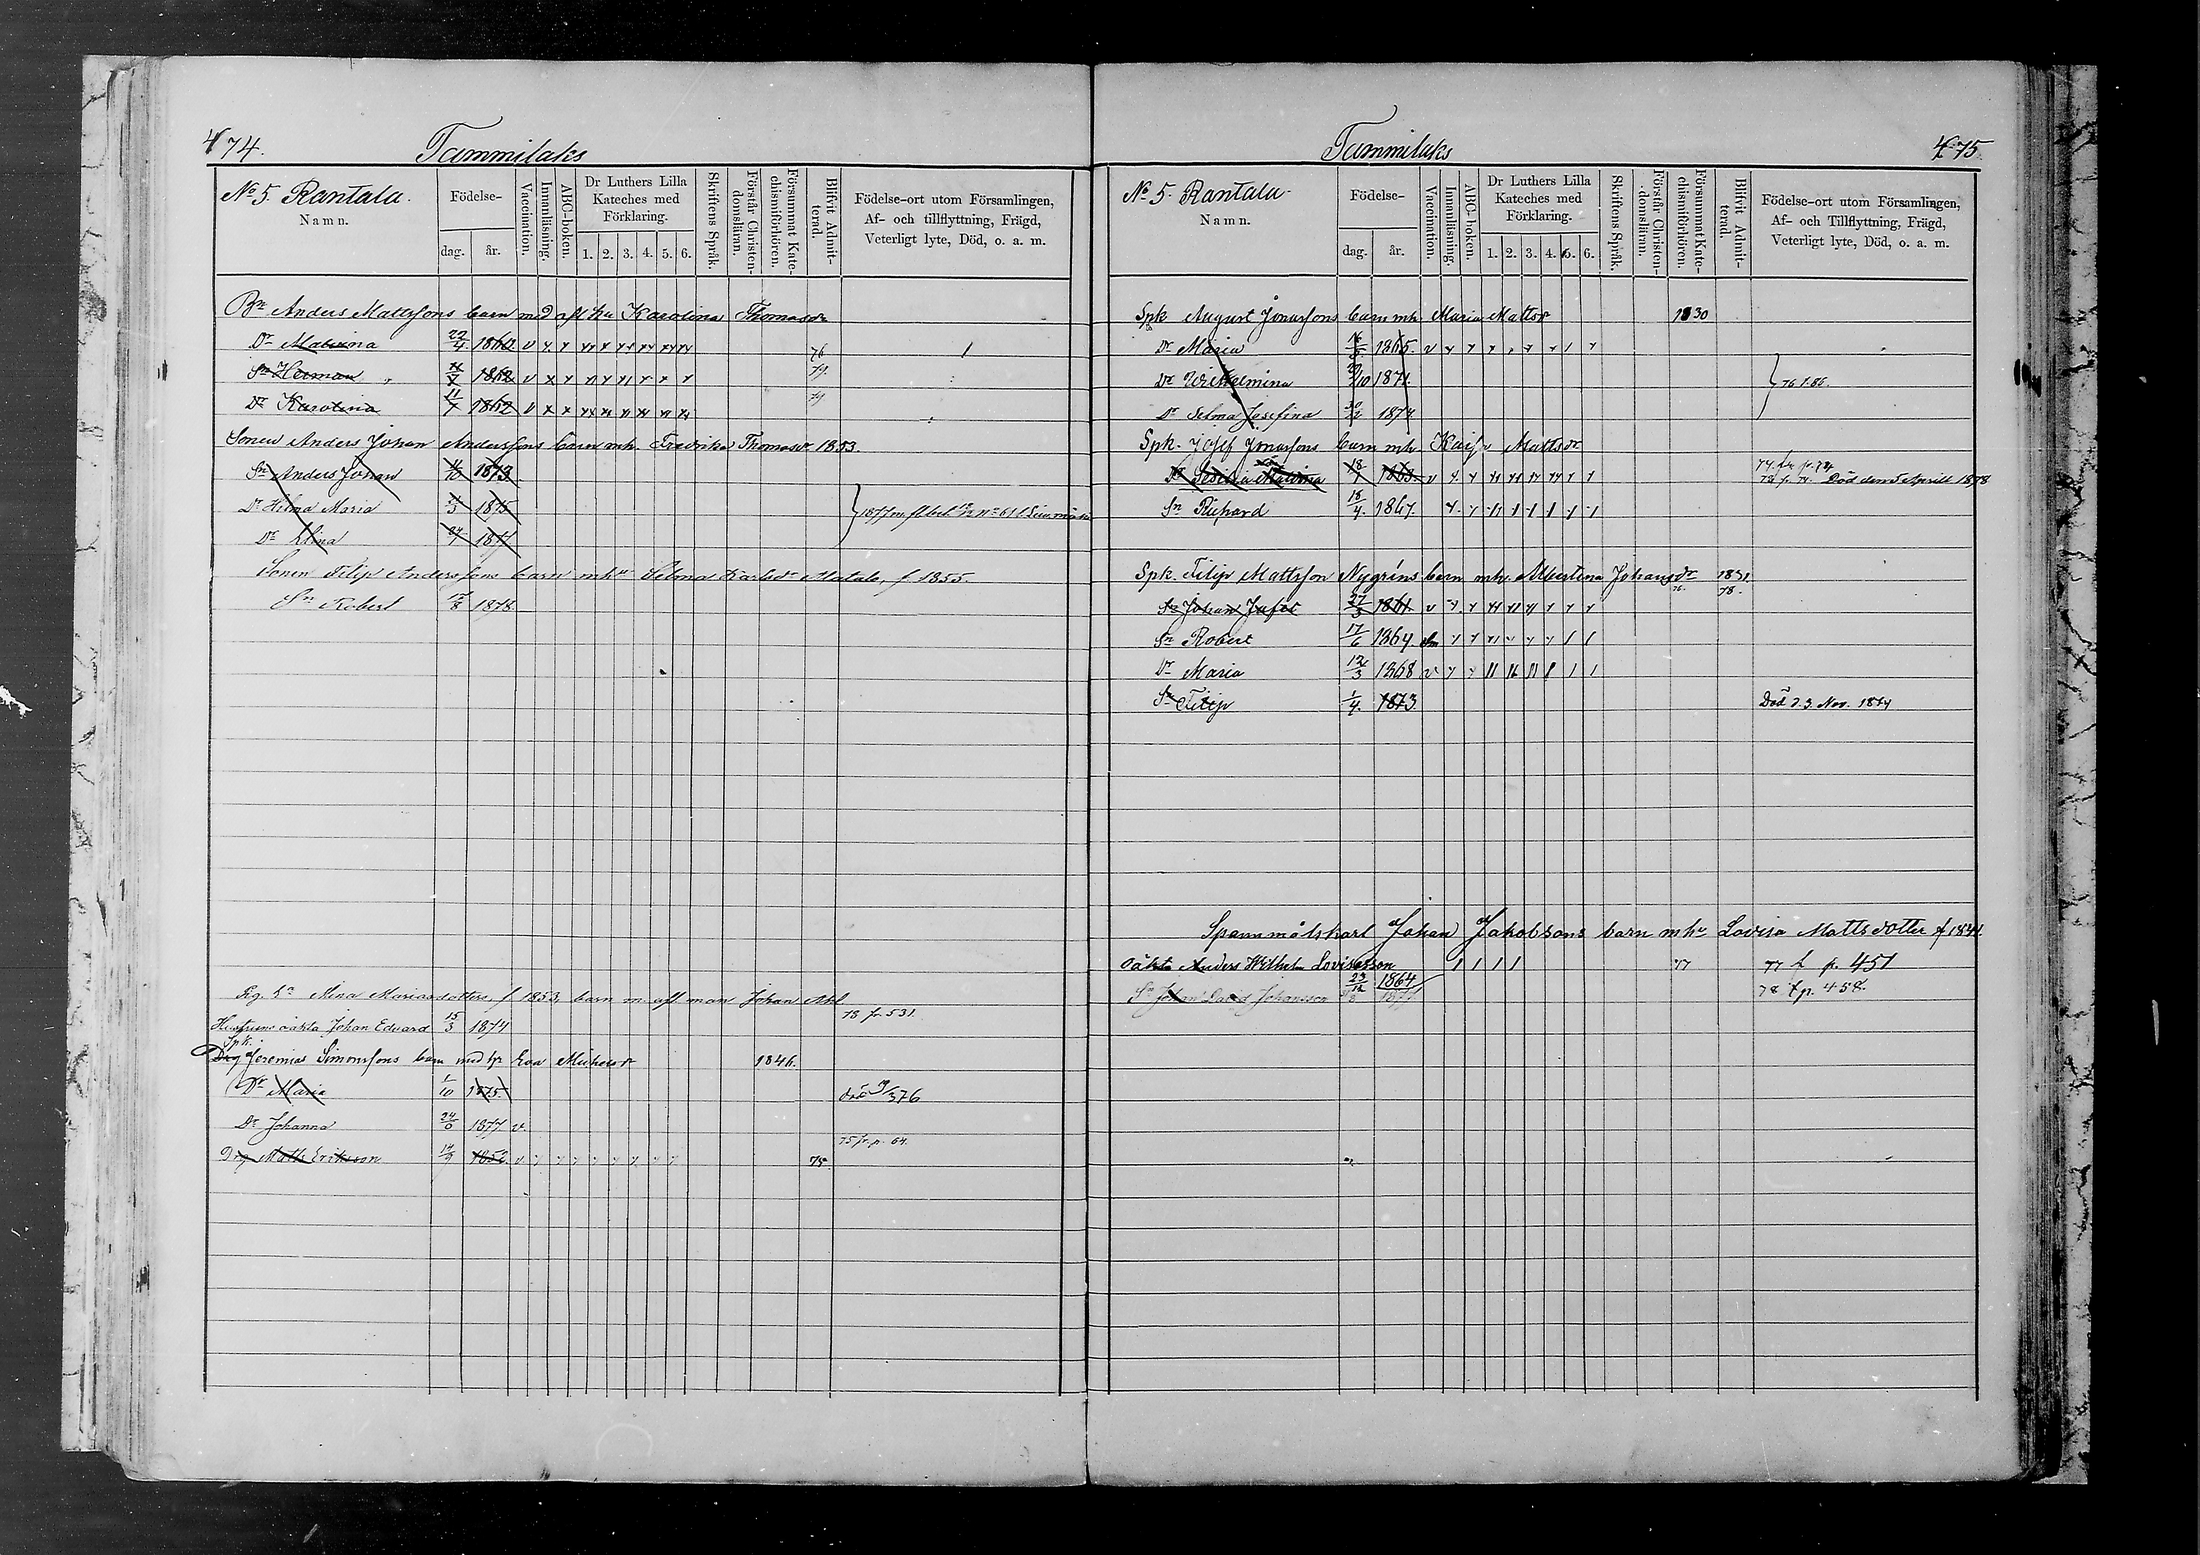 474.
Tammilaks
No 5. Rantala.
Namn.
Födelse-
dag.
år.
Vaccination.
Innanläsning.
ABC-boken.
Dr Luthers Lilla
Kateches med
Förklaring.
1. 2. 3. 4. 5. 6.
Skriftens Språk.
Förstår Christen-
domsläran.
Försummat Kate-
chismiförhören.
Blifvit Admit-
terad.
Födelse-ort utom Församlingen,
Af- och tillflyttning, Frägd,
Veterligt lyte, Död, o. a. m.
Anders Mattssons barn med afl. hu Karolina Thomasdr
Dr 22/4 1860 v 76
Sn Herman 1862 v 79
Dr Karolina 11/7 1862 v 79
Sonen Anders Johan Anderssons barn mhu Fredrika Thomasdr 1853.
Sn Anders Johan 11/10 1873
Dr Hilma Maria 1875
Dr Elma 24/7 1877
Sonen Filip Anderssons barn mhu Selma Karlsdr Matala, f 1855.
Sn Robert 17/8 1878
Pig. Mina Mariasdotters, f 1853, barn m. afl. man Johan Abl
78 fr. 531.
Hustruns oäkta Johan Edvard 15/3 1874
Spk.
Drg Jeremias Simonssons barn med hu Eva Michelsdr 1846.
Dr Maria 1/10 1875. död 9/3 76
Dr Johanna 1877 v.
75 fr. p. 64.
Drg Matts Eriksson 14/9 1858 v 75.
475.
Tammilaks
No 5. Rantala.
Namn.
Födelse-
dag.
år.
Vaccination.
Innanläsning.
ABC-boken.
Dr Luthers Lilla
Kateches med
Förklaring.
1. 2. 3. 4. 5. 6.
Skriftens Språk.
Förstår Christen-
domsläran.
Försummat Kate-
chismiförhören.
Blifvit Admit-
terad.
Födelse-ort utom Församlingen,
Af- och Tillflyttning, Frägd,
Veterligt lyte, Död, o. a. m.
Spk August Jonassons barn mhu Maria Mattsdr 1830
Dr Maria 1865. v
Dr Wilhelmina 29/10 1871.
Dr Selma Josefina 1874
Spk. Josef Jonassons barn mhu Kaisa Mattsdr
18/1 1863 v Död den 5 April 1878
Sn Rikhard 18/4. 1867.
Spk. Filip Mattsson Nygréns barn mhu Albertina Johansdr 1831
78.
Sn Johan Jafet 27/3 1861. v
Sn Robert 17/6 1864.
Dr Maria 12/3 1868 v
Sn Filip 1/4. 1873. Död d. 3 Nov. 1874
Spannmålskarl Johan Jakobsons barn mhu Lovisa Mattsdotter f 1834
oäkta Anders Wilhelm Lovisasson 23/12 1864 77 77 f p. 451
Sn Johan David Johansson 1877 78 f p. 458.